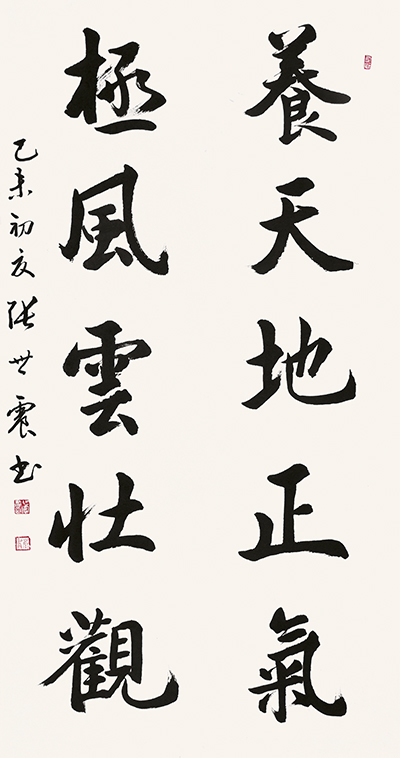 養天地正氣
極風雲壯觀
己未初夏張世震书